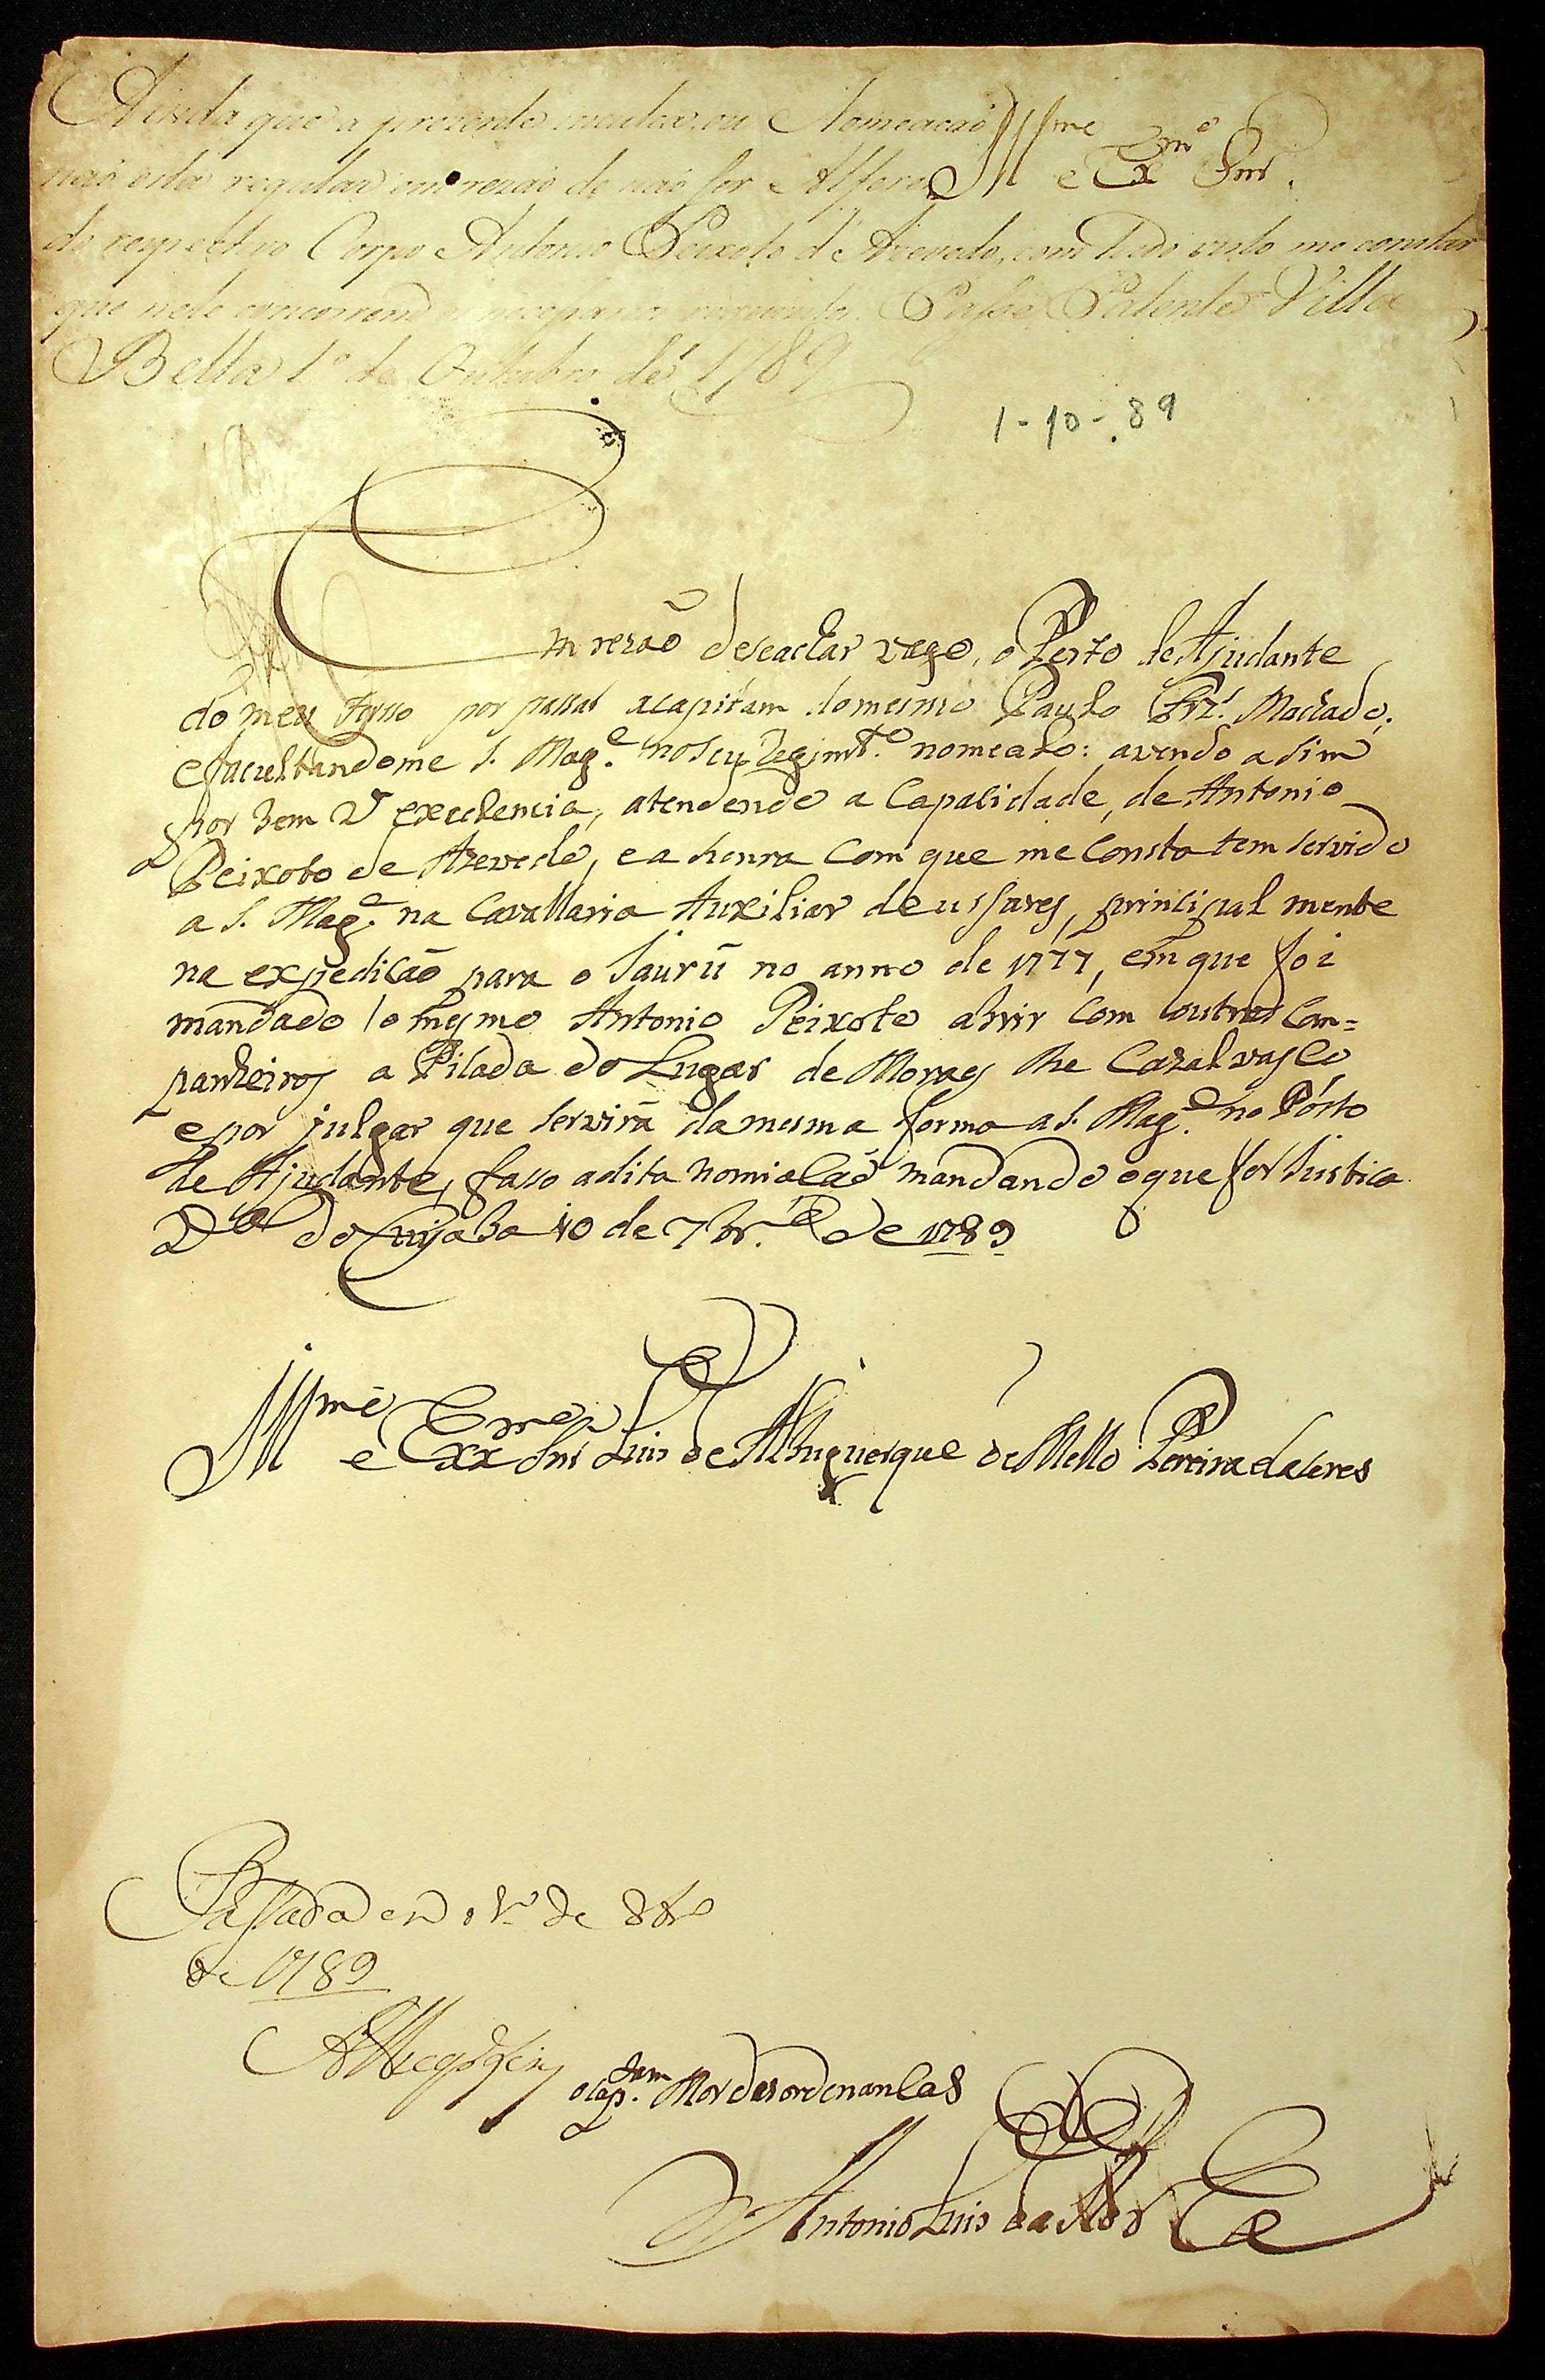 Ainda que a prezente Nomeacaõ
naõ está regular em rezaõ de naõ ser Alferes
do respectivo Corpo Antonio Peixoto d'Azevedo, com tudo visto me constar
que nele concorrem Passe Patente Villa
Bella 1º de Outubro de 1789
Illmº e Exmº Snr.
1-10-89
Em rezaõ de seachar vago, o Posto de Ajudante
do meu Terso por pasar acapitam domesmo Paulo Frz. Machado,
efacultandome S. Mage. noseu Regimtº. nomealo: avendo asim
por bem V excelencia, atendendo a Capasidade, de Antonio
Peixoto de Azevedo, e a honra Com que me Consta tem servido
a S. Mage. na Cavallaria Auxiliar de ussares, principal mente
na expediçaõ para o Jaurú no anno de 1777, em que foi
mandado o mesmo Antonio Peixoto abrir Com outros Com=
panheiros a Picada do Lugar de Moraes the Cazalvasco
epor julgar que servirá damesma forma a S. Mage. no Pósto
de Ajudante, faso adita nomiaçaõ mandando oque for Justica
Va do Cuyaba 10 de 7br.º de 1789
Illmº e Exmº Snr Luis de Albuquerque de Mello Pereira daCeres
Passada em 1º de 8brº
de 1789
o Capam. Mor das ordenancas
Antonio Luis da Rocha